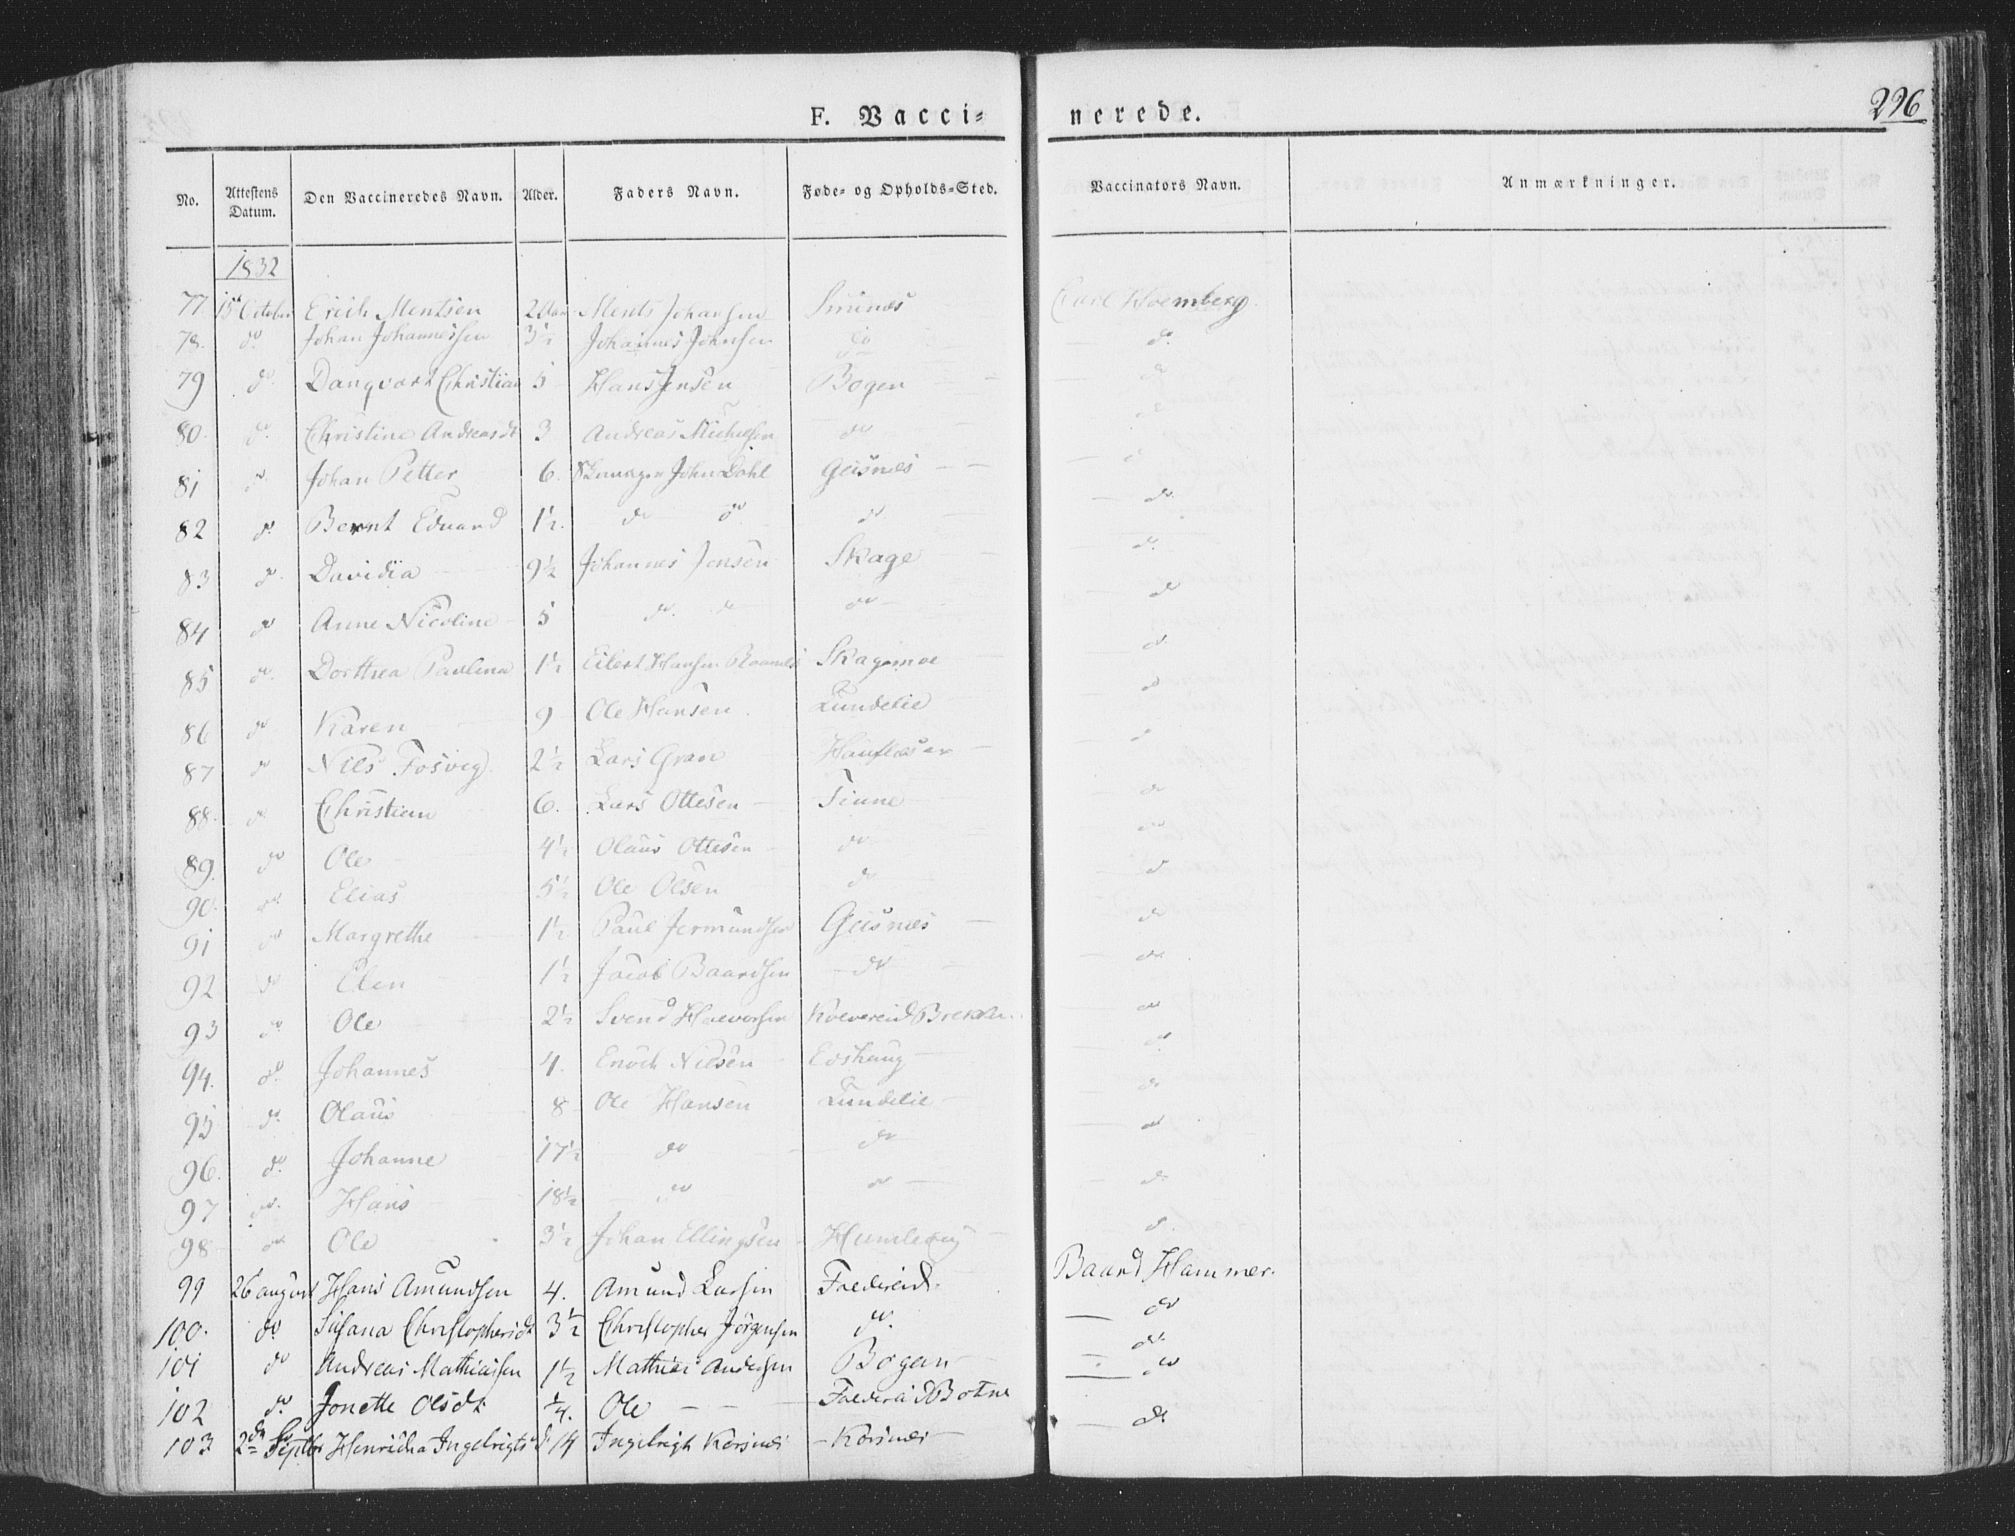 F. Vacci=
nerede.
226
No. Attestens Datum. Den Vaccineredes Navn. Alder. Faders Navn. Føde- og Opholds-Sted. Vaccinators Navn. Anmærkninger.
1832
77. 15de October Erich Mentsen 2 Aar Ments Johansen Carl Holmberg.
78. do Johan Johannessen 3½ Johannes Johnsen do do
79 do Danqvart Christian 5 Hans Jensen Bogen do
80. do Christine Andreasdt 3 Andreas Michelsen do do
81 do Johan Petter 6. John Dahl Geisnes do
82 do Bernt Eduard 1½. do do do do
83 do Davidia 9½ Johannes Jensen Skage do
84 do Anne Nicoline 5 do do do do
85 do Dorthea Paulina 1½ Eilert Hansen Skagemoe do
86 do Karen 9 Ole Hansen Lundelie do
87 do Nils Fosvig 2½ Lars Gran do
88. do Christian 6. Lars Ottesen Tinne do
89. do Ole 4½ Olaus Ottesen do do
90. do Elias 5½ Ole Olsen do do
91 do Margrethe 1½ Paul Jermundsen Geisnes do
92 do Elen 1½ Jacob Baardsen do do
93 do Ole 2½ Svend Halvorsen Kolvereid Brekke do
94. do Johannes 4. Enoch Nilsen do
95 do Olaus 8 Ole Hansen Lundelie do
96. do Johanne 17½ do do do
97 do Hans 18½ do do do
98 do Ole 3½ Johan Ellingsen do
99 26 august Hans Amundsen 4. Amund Larsen Foldereid. Baard Hammer.
100. do Susana Christophersdt 3½ Christopher Jørgensen do do
101 do Andreas Mathiassen 1½ Mathias Andersen Bogen do
102 do Jonette Olsdt ¼. Ole Foldereid Botne do
103 2den Septbr Henricha Ingelrigtsd 14 Ingelrigt Korsnes Korsnes do